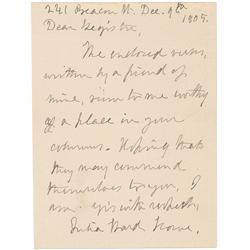 241 Beacon St. Dec. 9th
1905.
Dear Register,
The enclosed verses,
written by a friend of
mine, seem to me worthy
of a place in your
columns. Hoping that
they may commend
themselves to you, I
am yrs with respect,
Julia Ward Howe.